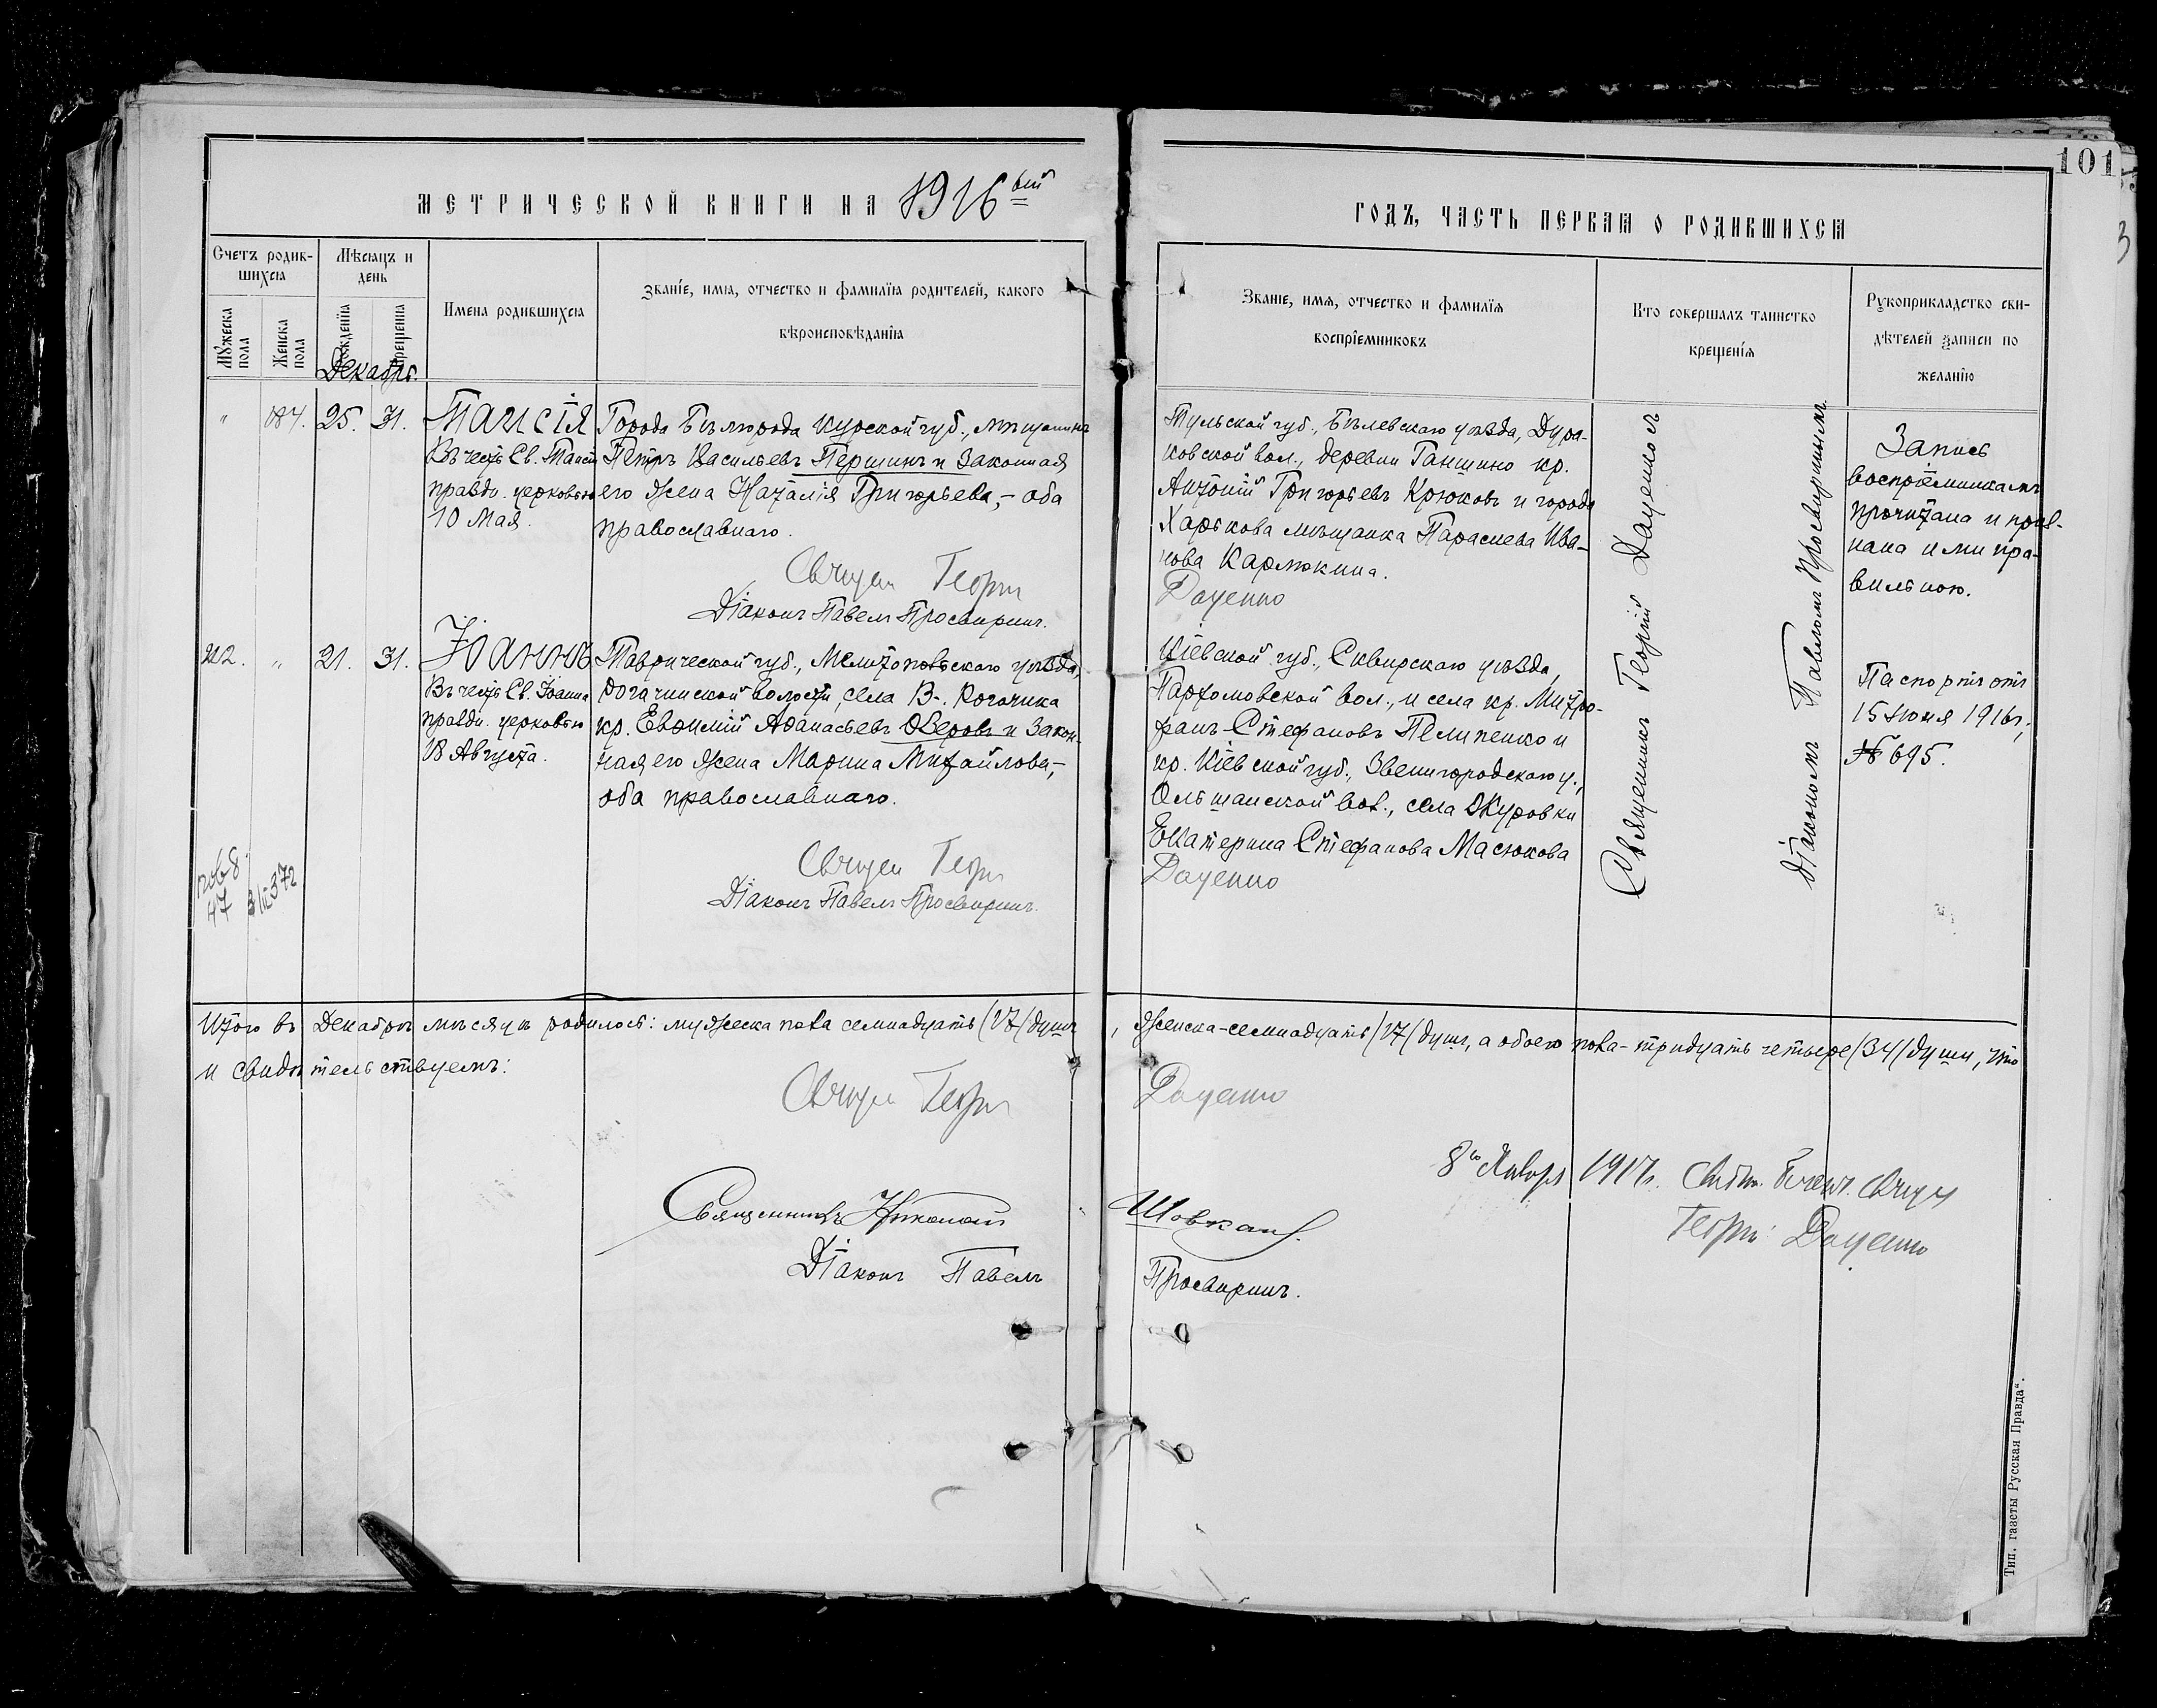 МЕТРИЧЕСКОЙ КНИГИ НА 1916ый
ГОДЪ, ЧАСТЬ ПЕРВАЯ О РОДИВШИХСЯ
101
3
Счетъ родив-
шихся
Мѣсяцъ и
день
Мужеска пола
Женска пола
рожденія
крещенія
Имена родившихся
Званіе, имя, отчество и фамилія родителей, какого
вѣроисповѣданія
Званіе, имя, отчество и фамилія
воспріемниковъ
Кто совершалъ таинство
крещенія
Рукоприкладство сви-
дѣтелей записи по
желанію
Декабрь.
" 184. 25. 31.
Таисія
Въ честь Св. Таисіи
праздн. церковью
10 Мая.
Города Бѣлгорода Курской губ., мѣщанинъ
Петръ Васильевъ Першинъ и законная
его жена Наталія Григорьева, – оба
православнаго.
Священ Георгій
Діаконъ Павелъ Просвиринъ.
Тульской губ., Бѣлевскаго уѣзда, Дура-
ковской вол., деревни Ганшино кр.
Антоній Григорьевъ Крюковъ и города
Харькова мѣщанка Параскева Ива-
нова Карпюкина.
Даценко
Запись
воспріемникамъ
прочитана и приз-
нана ими пра-
вильною.
212. " 21. 31.
Іоаннъ
Въ честь Св. Іоанна
праздн. церковью
18 Августа.
Таврической губ., Мелитопольскаго уѣзда,
Рогачинской волости, села В-. Рогачика
кр. Евфимій Афанасьевъ Озеровъ и закон-
ная его жена Марина Михайлова, –
оба православнаго.
Священ Георгій
Діаконъ Павелъ Просвиринъ.
Кіевской губ., Сквирскаго уѣзда,
Пархомовской вол., и села кр. Митро-
фанъ Стефановъ Пелипенко и
кр. Кіевской губ., Звенигородскаго у.,
Ольшанской вол., села Журовки
Екатерина Стефанова Масюкова
Даценко
Священникъ Георгій Даценко съ
діакономъ Павломъ Просвиринымъ.
Паспортъ отъ
15 Іюня 1916г.,
№ 695.
47
372
Итого въ Декабрѣ мѣсяцѣ родилось: мужеска пола семнадцать /17/ душъ, женска-семнадцать /17/ душъ, а обоего пола – тридцать четыре /34/ души, что
и свидѣтельствуемъ:
Священ Георгій Даценко
Священникъ Николай Шовкап
Діаконъ Павелъ Просвиринъ.
8го Января 1917г. Священ
Георгій Даценко
Тип. газеты „Русская Правда“.